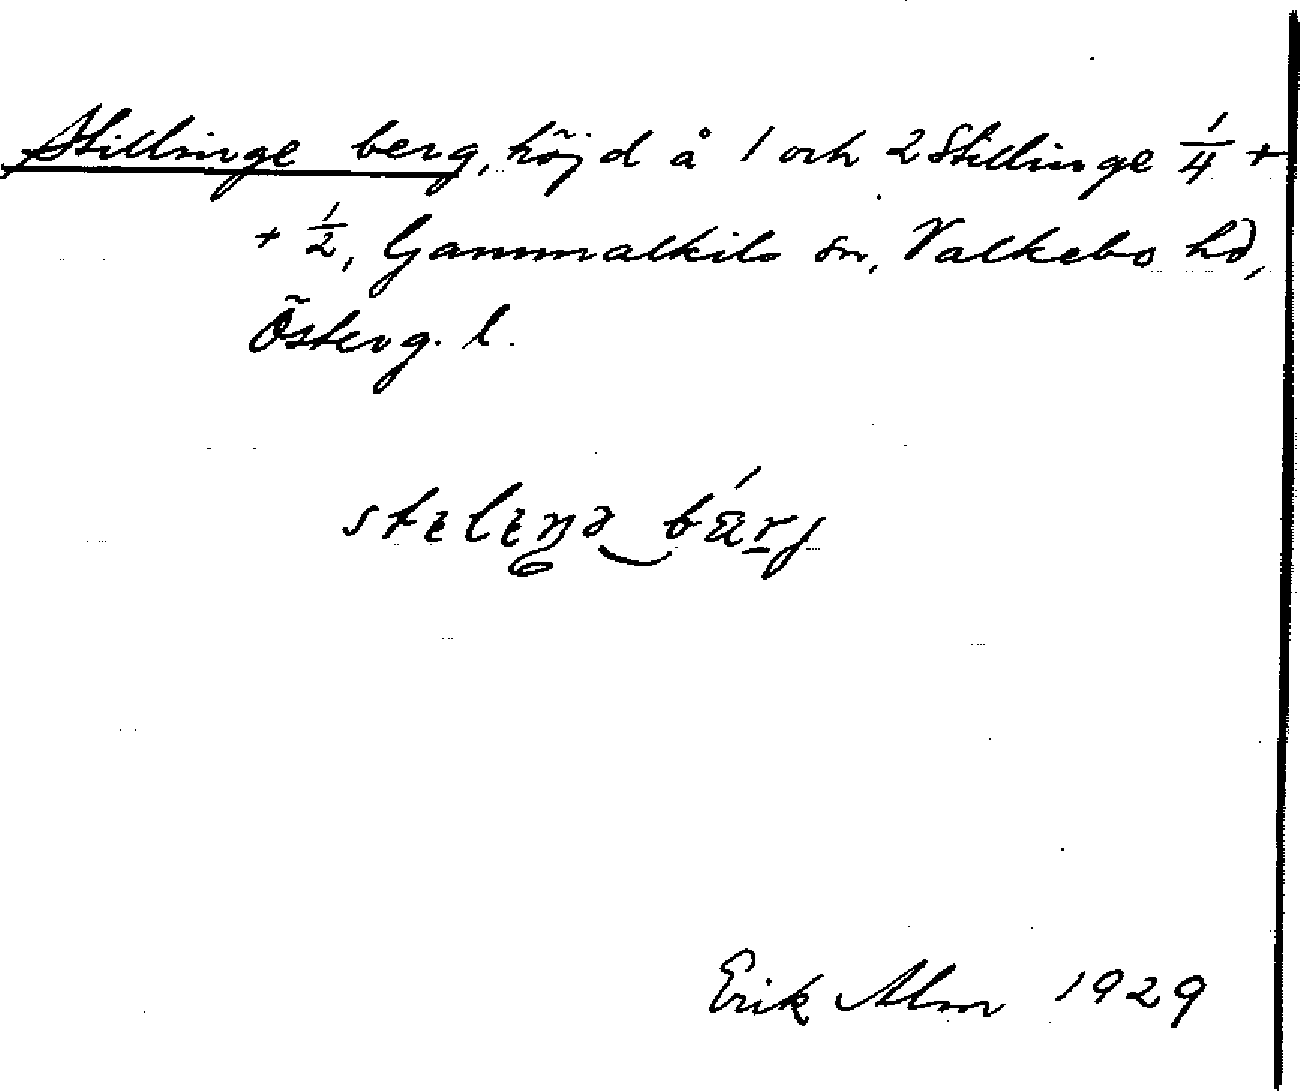 Stillinge berg, höjd å 1 och 2 Stillinge 1/4 +
+ 1/2, Gammalkils sn, Valkebo hd,
Österg. l.
Erik Alm 1929